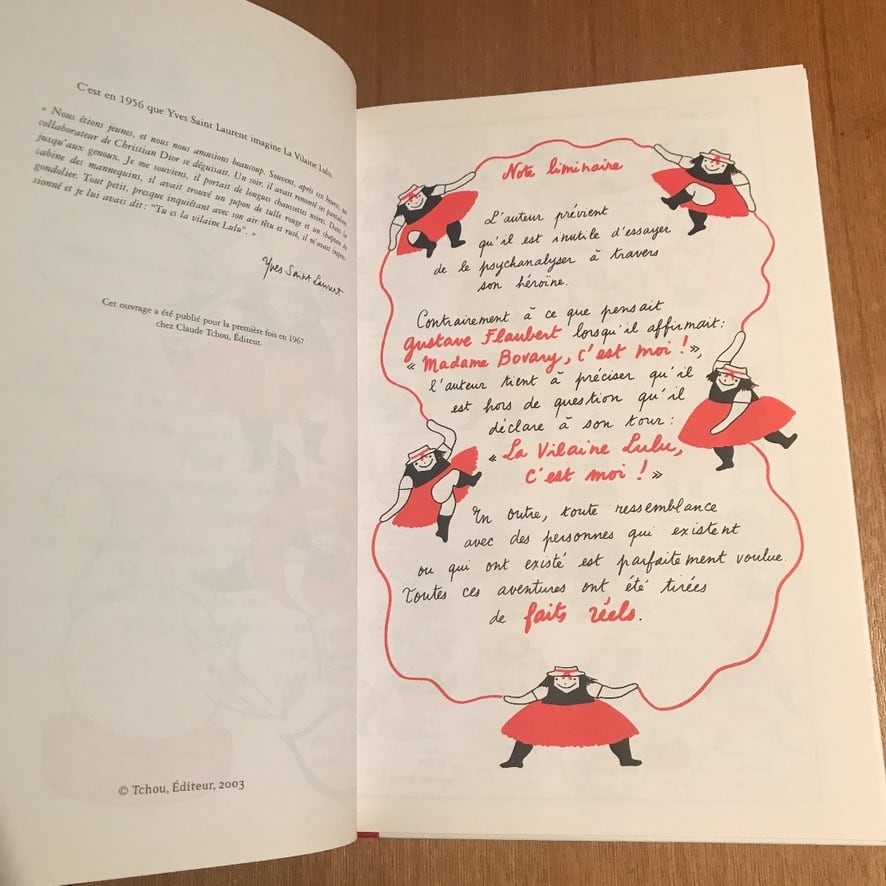 C'est en 1956 que Yves Saint Laurent imagine La Vilaine Lulu.
« Nous étions jeunes, et nous nous amusions beaucoup. Souvent, après six heures, un
collaborateur de Christian Dior se déguisait. Un soir, il avait remonté ses pantalons
jusqu'aux genoux. Je me souviens, il portait de longues chaussettes noires. Dans la
cabine des mannequins, il avait trouvé un jupon de tulle rouge et un chapeau de
gondolier. Tout petit, presque inquiétant avec son air têtu et rusé, il m'avait impres-
sionné et je lui avais dit : "Tu es la vilaine Lulu". »
Yves Saint Laurent
Cet ouvrage a été publié pour la première fois en 1967
chez Claude Tchou, Éditeur.
© Tchou, Éditeur, 2003
Note liminaire
L'auteur prévient
qu'il est inutile d'essayer
de le psychanalyser à travers
son héroïne.
Contrairement à ce que pensait
Gustave Flaubert lorsqu'il affirmait :
« Madame Bovary, c'est moi ! »,
l'auteur tient à préciser qu'il
est hors de question qu'il
déclare à son tour :
« La Vilaine Lulu,
c'est moi ! »
En outre, toute ressemblance
avec des personnes qui existent
ou qui ont existé est parfaitement voulue.
Toutes ces aventures ont été tirées
de faits réels.